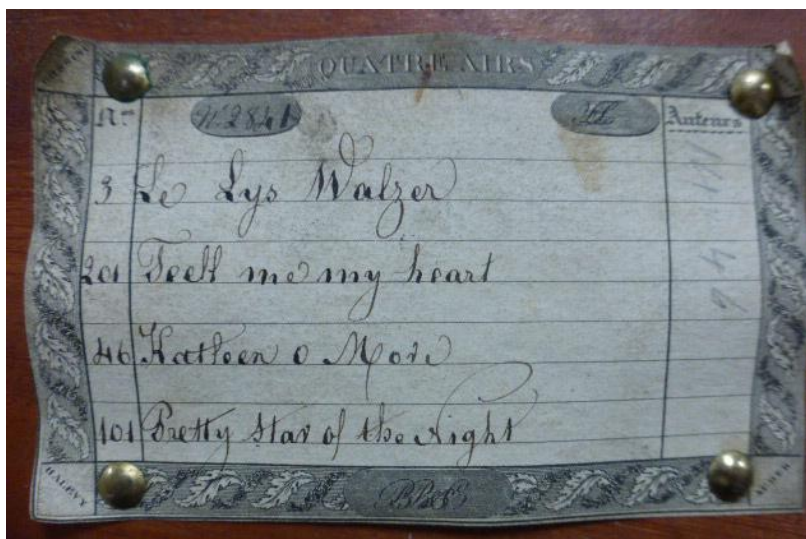 QUATRE AIRS
No 2841
Auteurs
3 Le Lys Walzer
201 Teell me my heart
46 Katleen o More
101 Pretty Star of the Night
HALEVY
AUBER